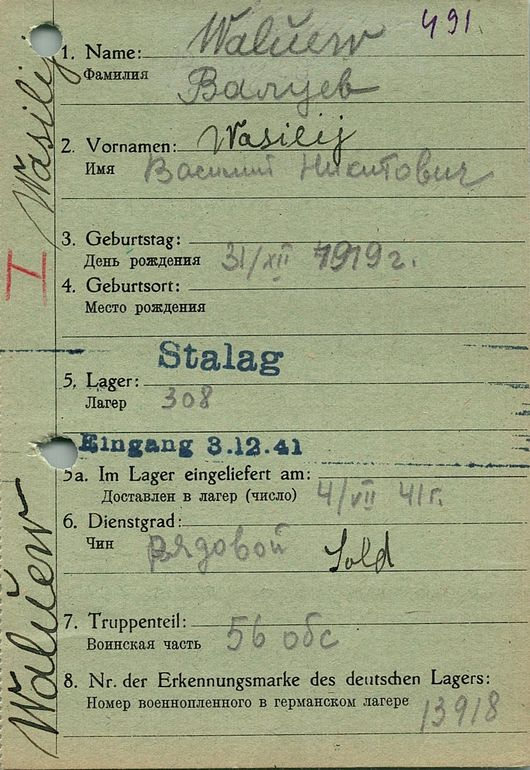 491.
1. Name: Walŭew
Фамилия Валуев
2. Vornamen: Wasilij
Имя Василий Никитович
3. Geburtstag:
День рождения 31/XII 1919 г.
4. Geburtsort:
Место рождения
Stalag
5. Lager:
Лагер 308
Eingang 3.12.41
5a. Im Lager eingeliefert am:
Доставлен в лагер (число) 4/VII 41 г.
6. Dienstgrad:
Чин рядовой Sold
7. Truppenteil:
Воинская часть 56 обс
8. Nr. der Erkennungsmarke des deutschen Lagers:
Номер военнопленного в германском лагере 13918
Walŭew Wasilij
I